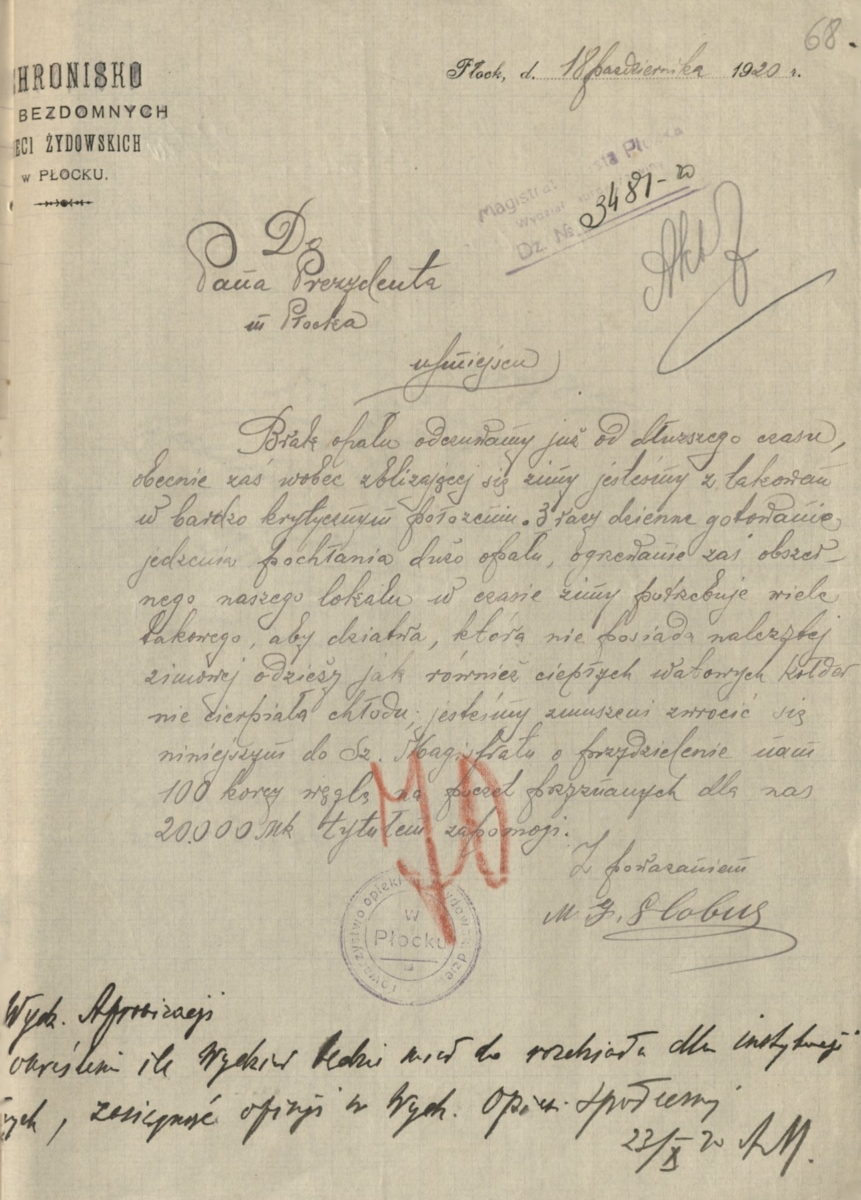 68.
HRONISKO
BEZDOMNYCH
ECI ŻYDOWSKICH
w PŁOCKU.
Płock, d. 18 października 1920 r.
Magistrat Miasta Płocka
Dz. № 3481-20
Do
Pana Prezydenta
m Płocka
w miejscu
Brak opału odczuwamy już od dłuzszego czasu,
obecnie zaś wobec zbliżającej się zimy jesteśmy z takowem
w bardzo krytycznym położeniu. 3 razy dzienne gotowanie
jedzenia pochłania dużo opału, ogrzewanie zaś obszer-
nego naszego lokalu w czasie zimy potrzebuje wiele
takowego, aby dziatwa, która nie posiada należytej
zimowej odzieży jak również ciepłych watowych kołder
nie cierpiała chłodu; jesteśmy zmuszeni zwrócić się
niniejszym do Sz. Magistratu o przydzielenie nam
100 korcy węgla na poczet przyznanych dla nas
20.000 Mk tytułem zapomogi.
Z poważaniem
M J. Globus
w
Płocku
Wydz. Aprowizacji
określeni ile Wydział będzie miał do rozdziału dla instytucji
ych, zasięgnąć opinji w Wydz. Opieki Społecznej
23/X 20 AM.